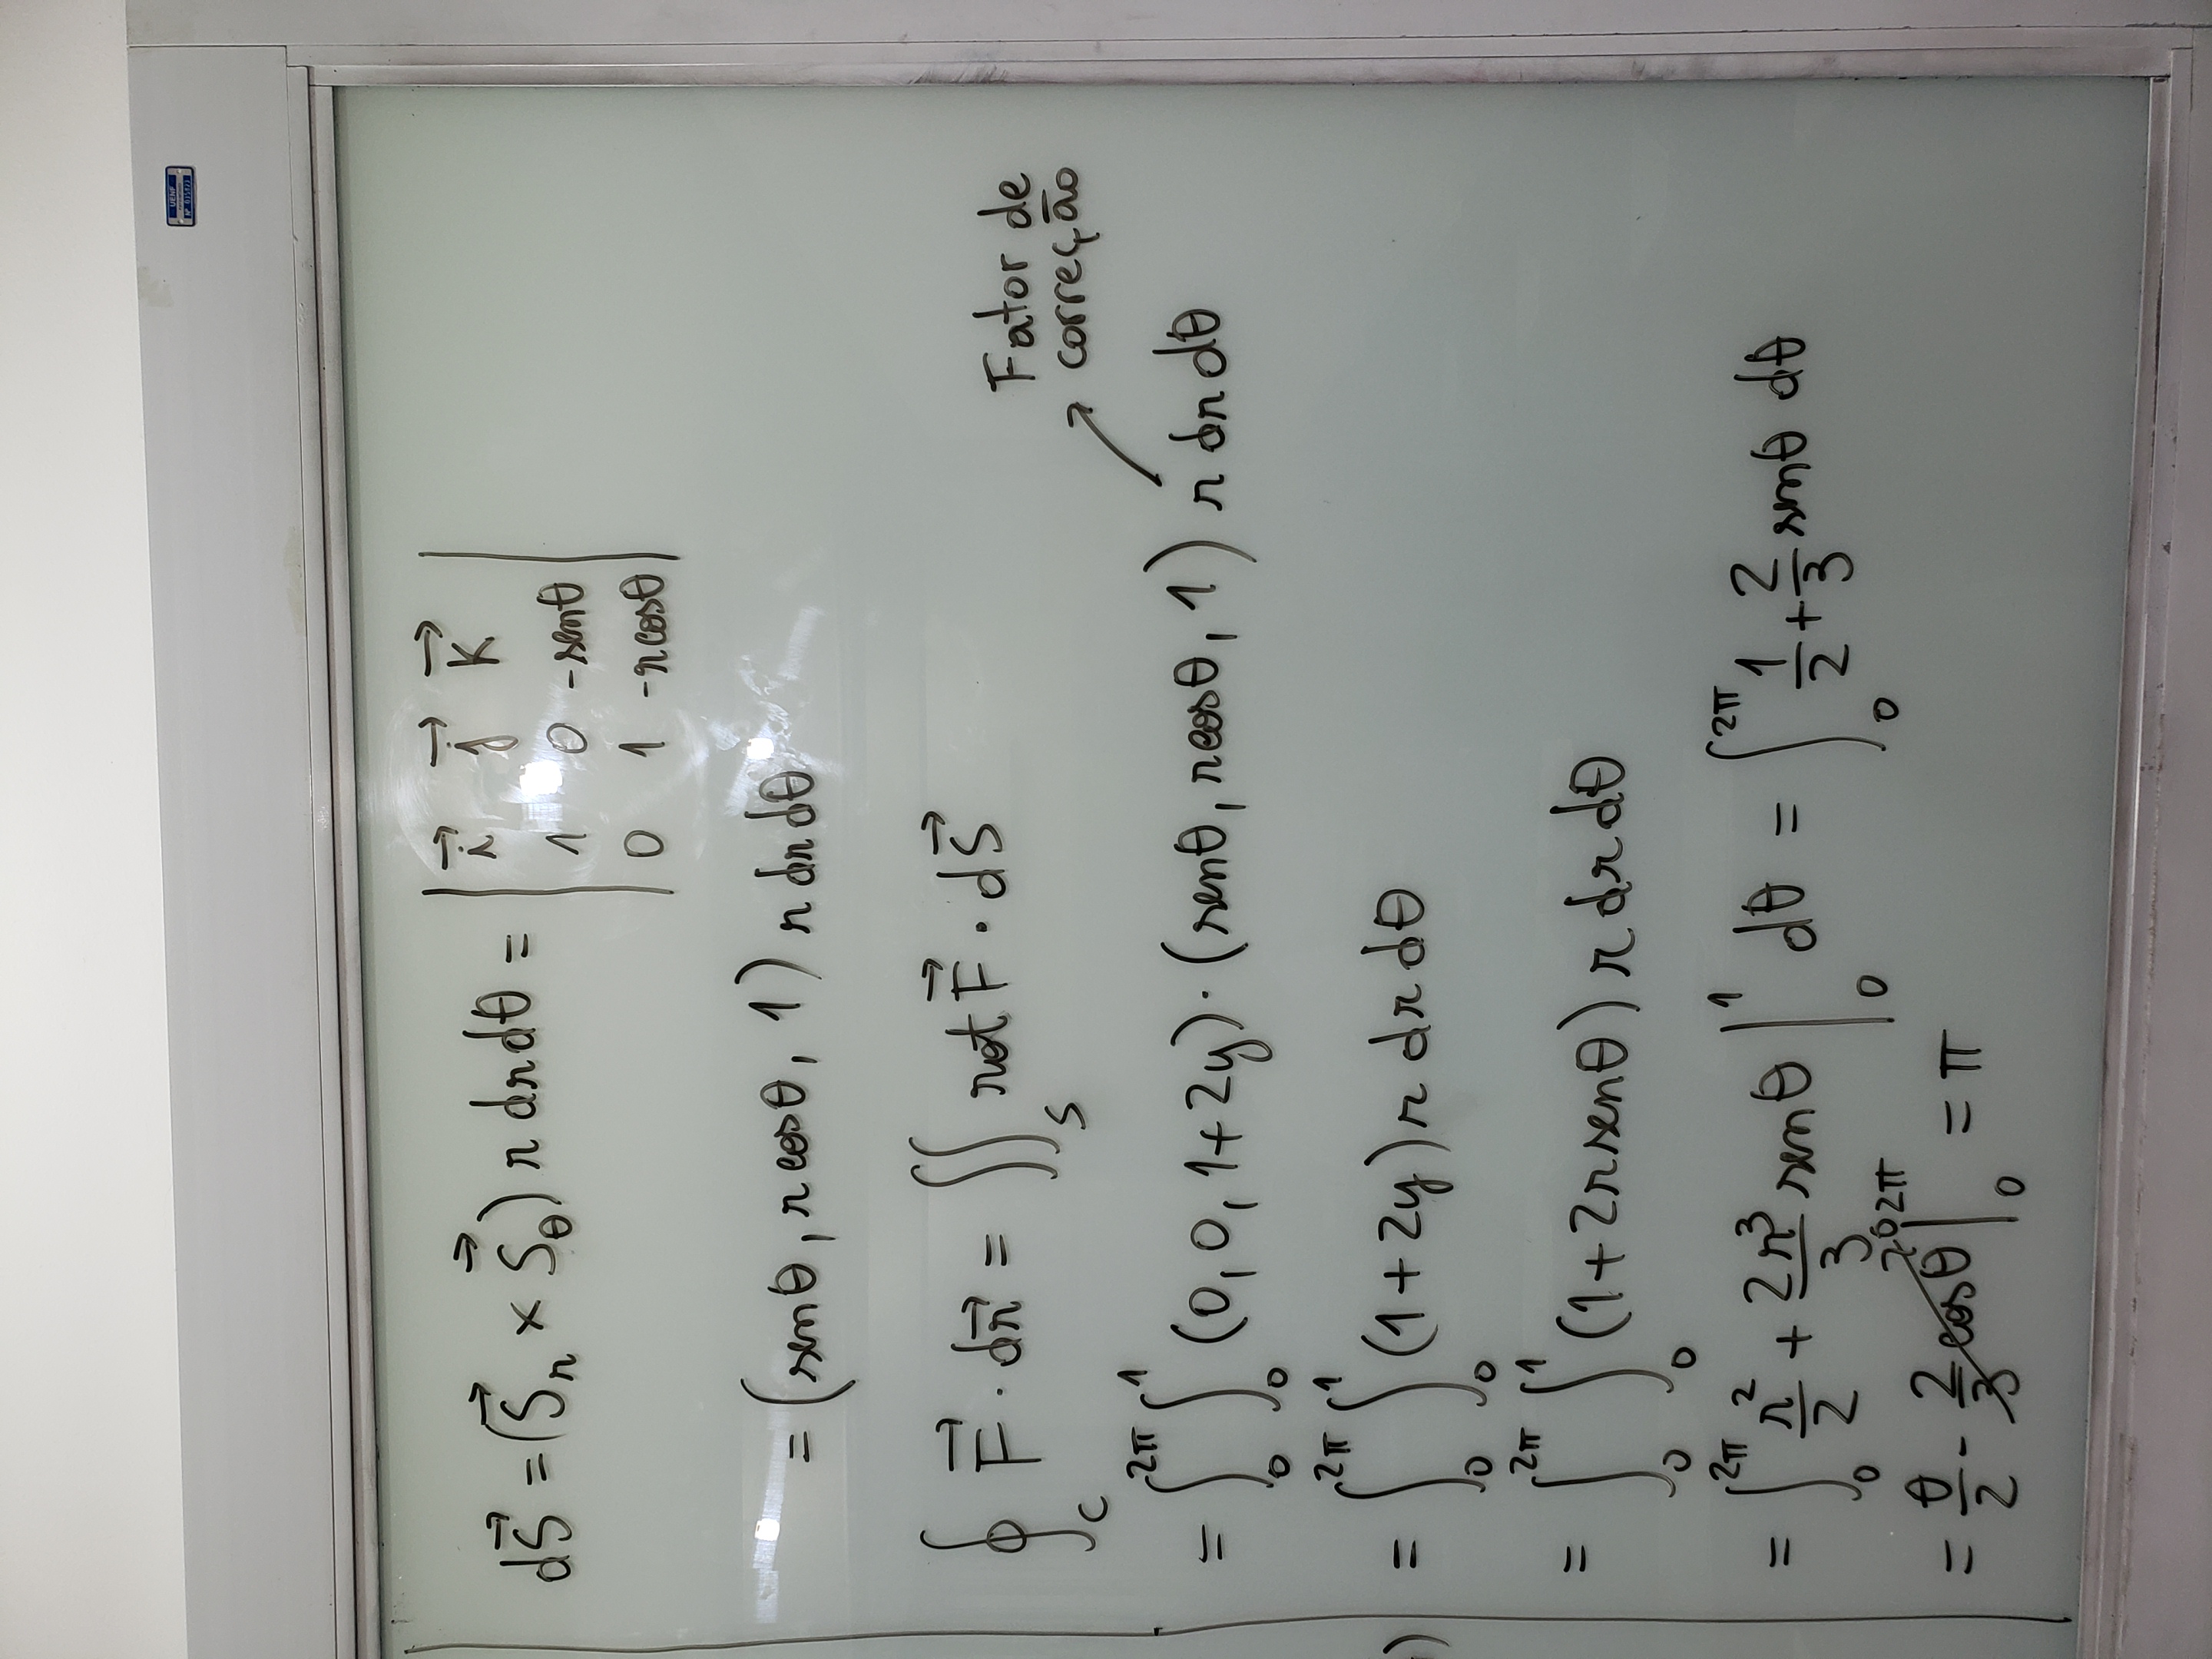 UENF
Nº
dS⃗ = (S⃗_r × S⃗_θ) r dr dθ = | i⃗ j⃗ k⃗ |
| 1 0 -senθ |
| 0 1 -rcosθ |
= (senθ, rcosθ, 1) r dr dθ
∮_C F⃗ · dr⃗ = ∬_S rot F⃗ · dS⃗
Fator de
correção
= ∫_0^2π ∫_0^1 (0, 0, 1+2y) · (senθ, rcosθ, 1) r dr dθ
)
= ∫_0^2π ∫_0^1 (1+2y) r dr dθ
= ∫_0^2π ∫_0^1 (1+2rsenθ) r dr dθ
= ∫_0^2π r²/2 + 2r³/3 senθ |_0^1 dθ = ∫_0^2π 1/2 + 2/3 senθ dθ
= θ/2 - 2/3 cosθ 0 |_0^2π = π